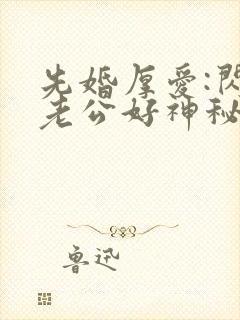 先婚厚愛:閃
老公好神秘
魯迅